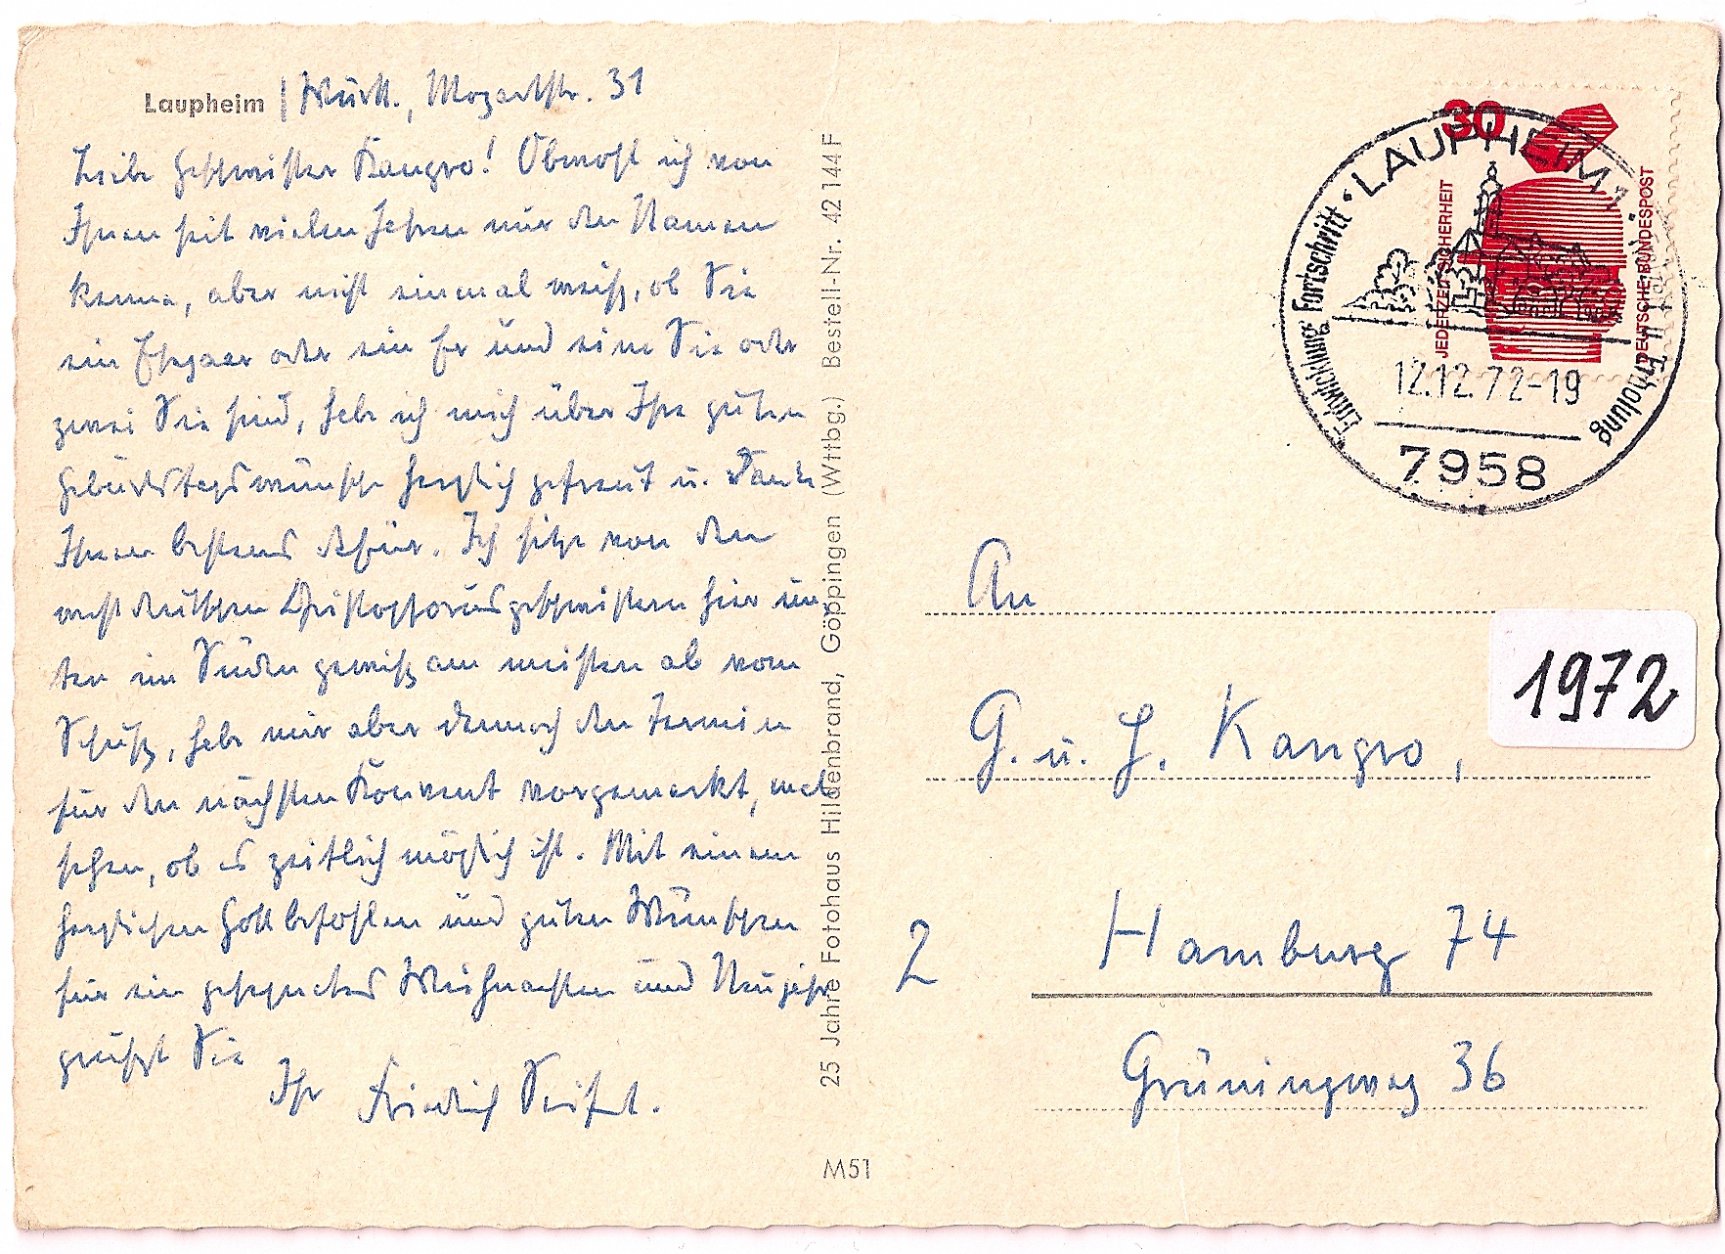 Laupheim / Württ., Mozartstr. 31
Liebe Geschwister Kangro! Obwohl ich von
Ihnen seit vielen Jahren nur den Namen
kenne, aber nicht einmal weiß, ob Sie
ein Ehepaar oder ein Er und eine Sie oder
zwei Sie sind, habe ich mich über Ihre guten
Geburtstagswünsche herzlich gefreut u. danke
Ihnen bestens dafür. Ich sitze von den
westdeutschen Christophorusgeschwistern hier un-
ten im Süden gewiß am meisten ab vom
Schuß, habe mir aber dennoch den Termin
für den nächsten Konvent vorgemerkt, mal
sehen, ob es zeitlich möglich ist. Mit einem
herzlichen Gott befohlen und guten Wünschen
für ein gesegnetes Weihnachten und Neujahr
grüßt Sie
Ihr Friedrich Seifert.
25 Jahre Fotohaus Hildenbrand, Göppingen (Wttbg.) Bestell-Nr. 42 144 F
M51
30
JEDERZEIT SICHERHEIT
DEUTSCHE BUNDESPOST
LAUPHEIM 1
Entwicklung Fortschritt
Erholung
12.12.72-19
7958
An
G. u. J. Kangro,
2 Hamburg 74
Grüningweg 36
1972